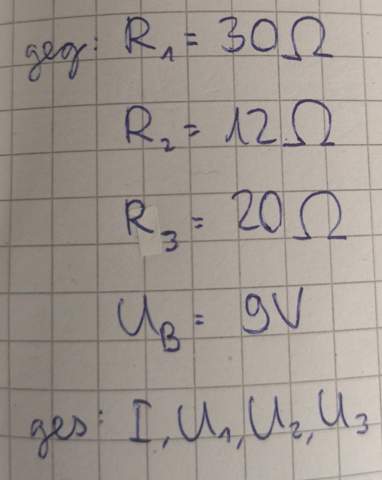 geg: R₁ = 30Ω
R₂ = 12Ω
R₃ = 20Ω
U_B = 9V
ges: I, U₁, U₂, U₃